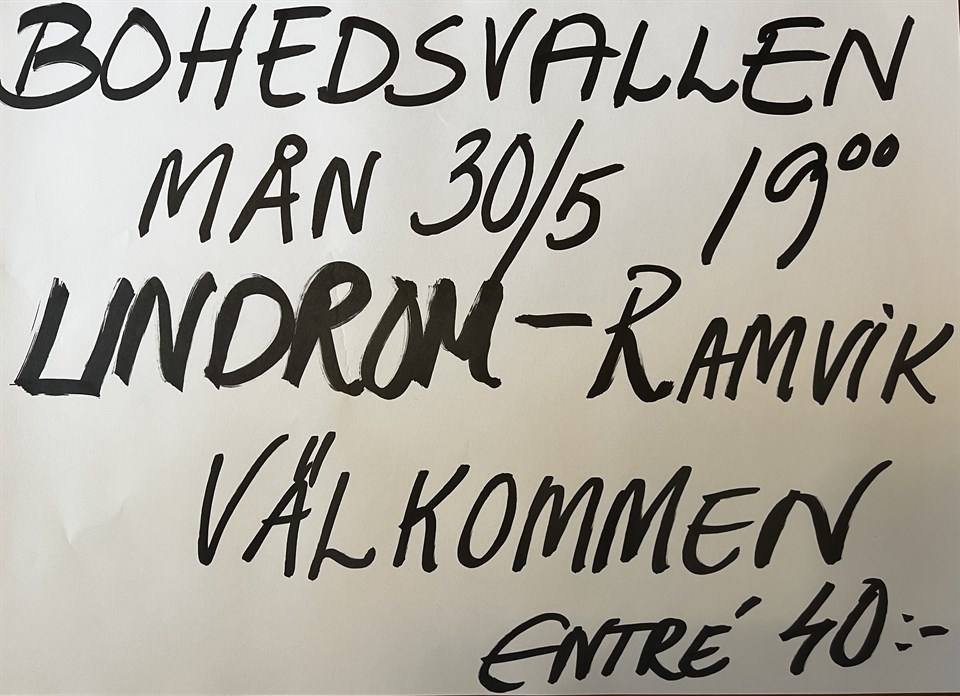 BOHEDSVALLEN
MÅN 30/5 19⁰⁰
LINDROM - RAMVIK
VÄLKOMMEN
ENTRÉ 40:-